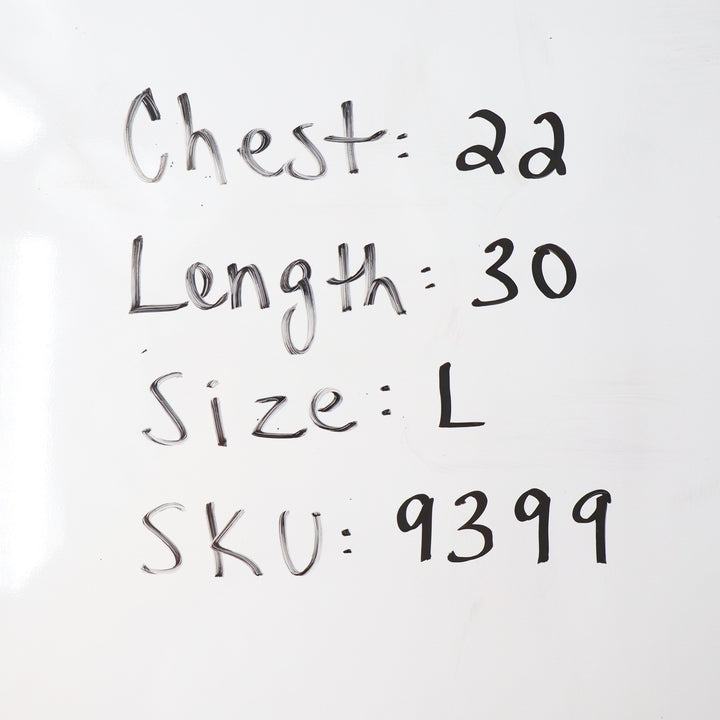 Chest: 22
Length: 30
Size: L
SKU: 9399